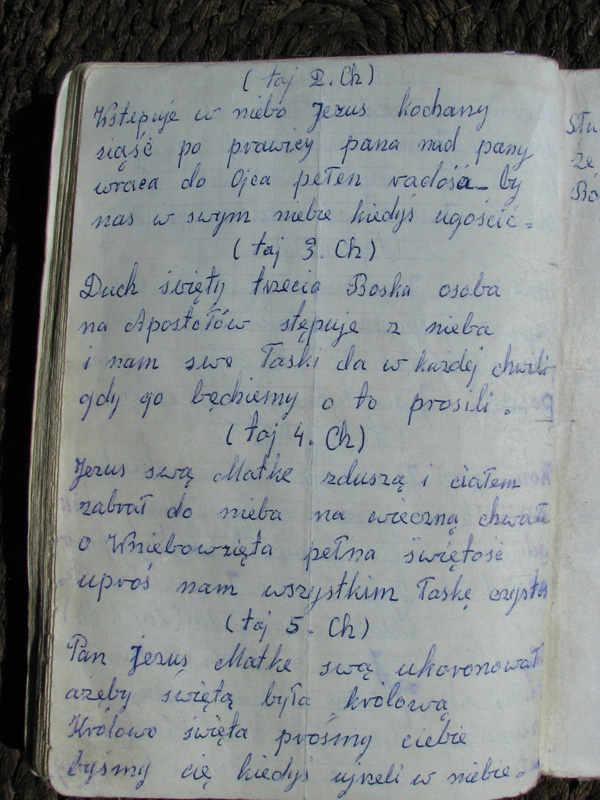 ( taj 2. Ch)
Wstępuje w niebo Jezus kochany
siąść po prawicy pana nad pany
wraca do Ojca pełen radości by
nas w swym niebie kiedyś ugościć.
( taj 3. Ch)
Duch święty trzecia Boska osoba
na Apostołów stępuje z nieba
i nam swe łaski da w każdej chwili
gdy go będziemy o to prosili.
( taj 4. Ch)
Jezus swą Matkę zduszą i ciałem
zabrał do nieba na wieczną chwałe
o Wniebowzięta pełna świętość
uproś nam wszystkim łaskę
( taj 5. Ch)
Pan Jezus Matkę swą ukoronował
ażeby świętą była królową
Królowo święta prośmy ciebie
byśmy cię kiedyś ujżeli w niebie.
Słu
że
Bo